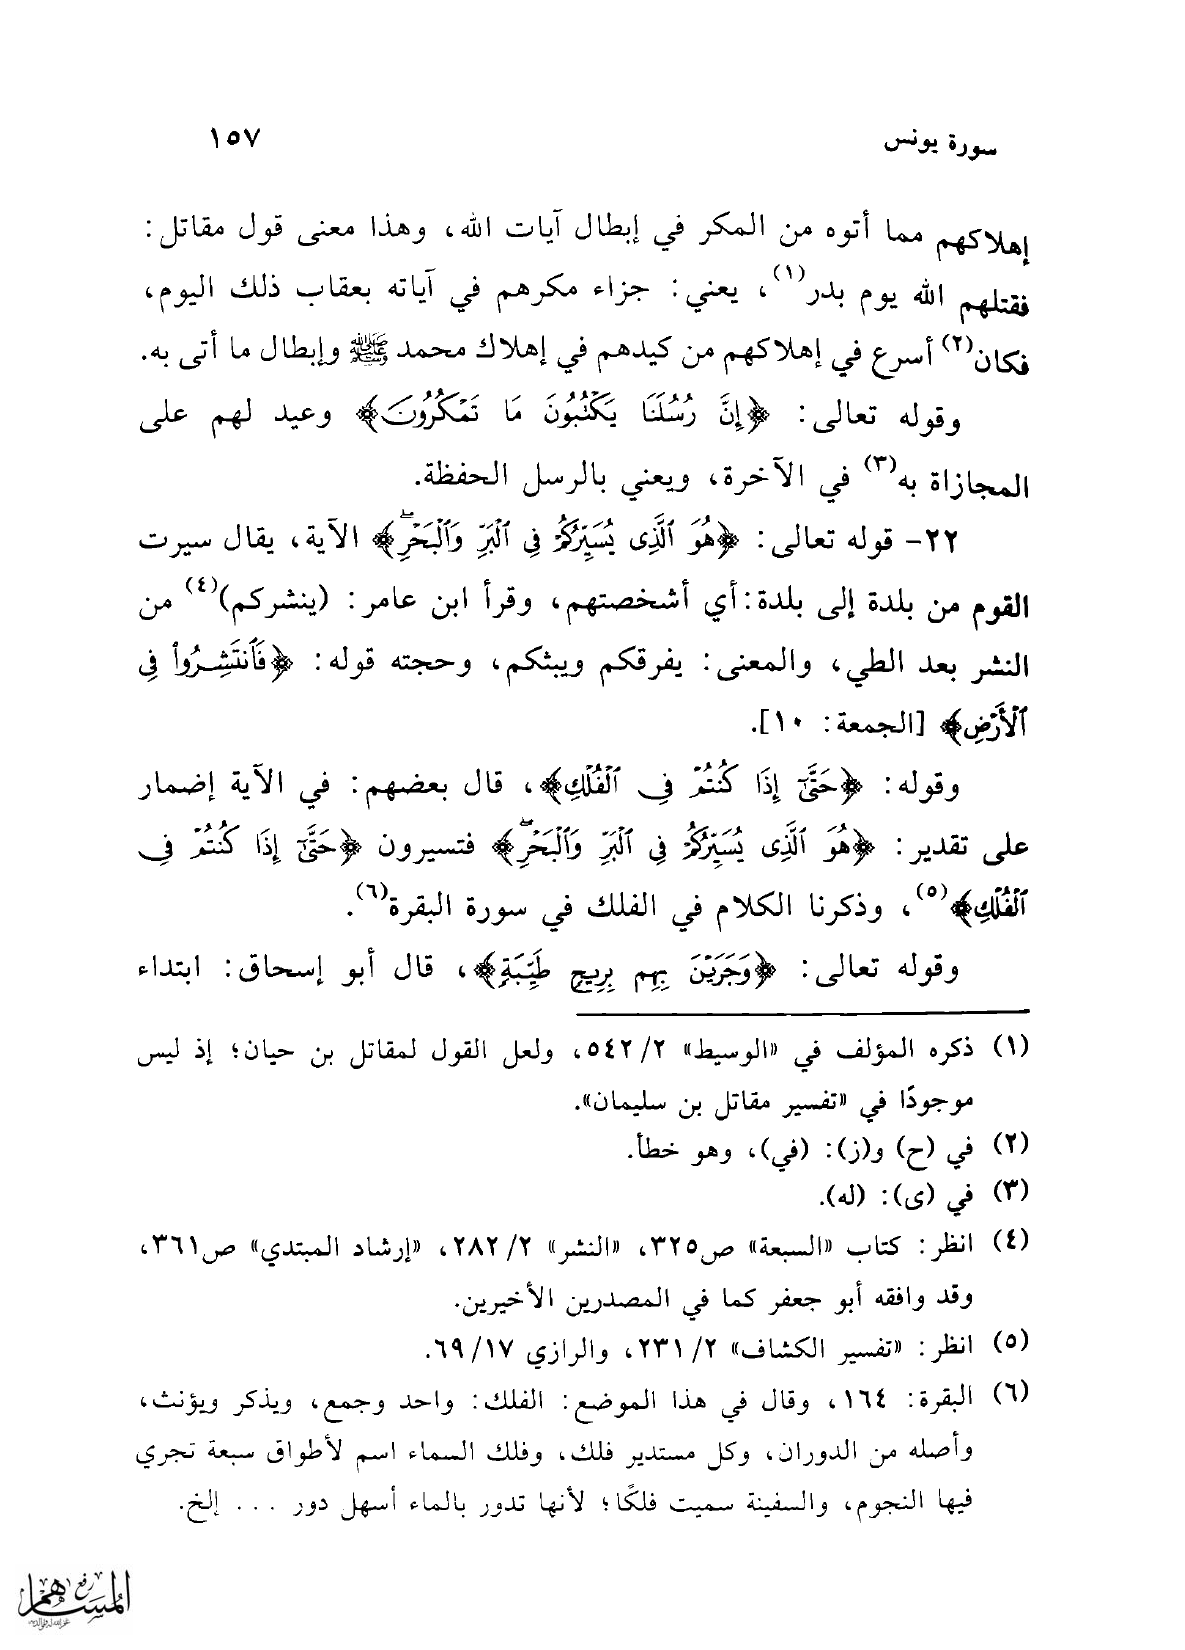 سورة يونس ١٥٧
إهلاكهم مما أتوه من المكر في إبطال آيات الله، وهذا معنى قول مقاتل:
فقتلهم الله يوم بدر(١)، يعني: جزاء مكرهم في آياته بعقاب ذلك اليوم،
فكان(٢) أسرع في إهلاكهم من كيدهم في إهلاك محمد ﷺ وإبطال ما أتى به.
وقوله تعالى: ﴿إِنَّ رُسُلَنَا يَكْتُبُونَ مَا تَمْكُرُونَ﴾ وعيد لهم على
المجازاة به(٣) في الآخرة، ويعني بالرسل الحفظة.
٢٢- قوله تعالى: ﴿هُوَ ٱلَّذِى يُسَيِّرُكُمْ فِى ٱلْبَرِّ وَٱلْبَحْرِۖ﴾ الآية، يقال سيرت
القوم من بلدة إلى بلدة:أي أشخصتهم، وقرأ ابن عامر: (ينشركم)(٤) من
النشر بعد الطي، والمعنى: يفرقكم ويبثكم، وحجته قوله: ﴿فَٱنتَشِرُوا۟ فِى
ٱلْأَرْضِ﴾ [الجمعة: ١٠].
وقوله: ﴿حَتَّىٰٓ إِذَا كُنتُمْ فِى ٱلْفُلْكِ﴾، قال بعضهم: في الآية إضمار
على تقدير: ﴿هُوَ ٱلَّذِى يُسَيِّرُكُمْ فِى ٱلْبَرِّ وَٱلْبَحْرِۖ﴾ فتسيرون ﴿حَتَّىٰٓ إِذَا كُنتُمْ فِى
ٱلْفُلْكِ﴾(٥)، وذكرنا الكلام في الفلك في سورة البقرة(٦).
وقوله تعالى: ﴿وَجَرَيْنَ بِهِم بِرِيحٍ طَيِّبَةٍ﴾، قال أبو إسحاق: ابتداء
(١) ذكره المؤلف في «الوسيط» ٢/ ٥٤٢، ولعل القول لمقاتل بن حيان؛ إذ ليس
موجودًا في «تفسير مقاتل بن سليمان».
(٢) في (ح) و(ز): (في)، وهو خطأ.
(٣) في (ى): (له).
(٤) انظر: كتاب «السبعة» ص٣٢٥، «النشر» ٢/ ٢٨٢، «إرشاد المبتدي» ص٣٦١،
وقد وافقه أبو جعفر كما في المصدرين الأخيرين.
(٥) انظر: «تفسير الكشاف» ٢/ ٢٣١، والرازي ١٧/ ٦٩.
(٦) البقرة: ١٦٤، وقال في هذا الموضع: الفلك: واحد وجمع، ويذكر ويؤنث،
وأصله من الدوران، وكل مستدير فلك، وفلك السماء اسم لأطواق سبعة تجري
فيها النجوم، والسفينة سميت فلكًا؛ لأنها تدور بالماء أسهل دور ... إلخ.
رفع
المساهم